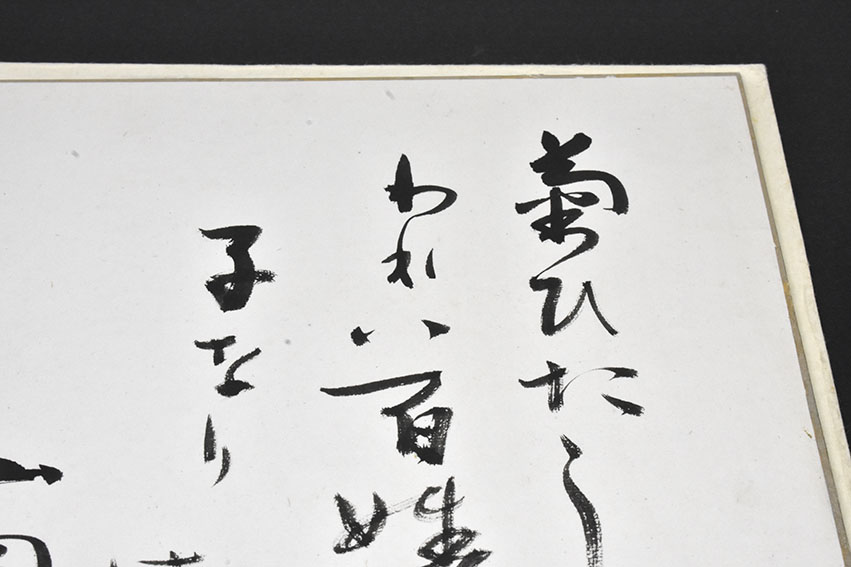 菊ひたし
われハ百姓
子なり